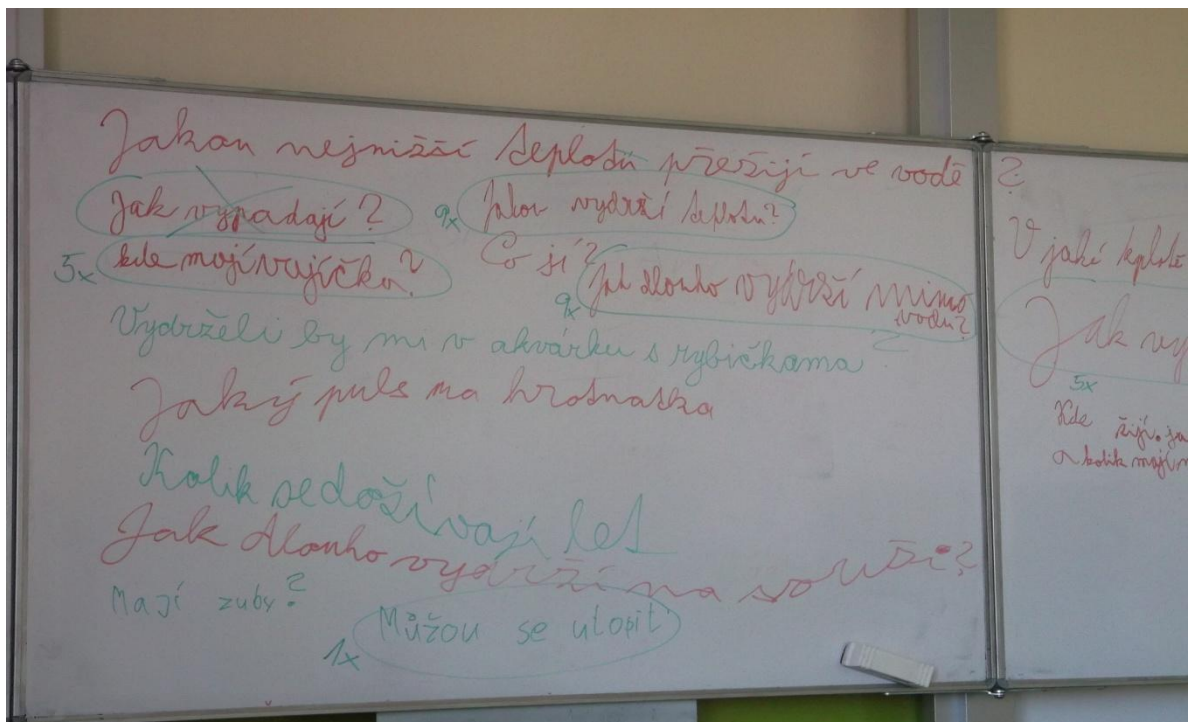 Jakou nejnižší teplotu přežijí ve vodě ?
Jak vypadají ?
9x Jakou vydrží teplotu?
5x kde mají vajíčka?
Co jí?
9x Jak dlouho vydrží mimo
vodu?
Vydrželi by mi v akvárku s rybičkama ?
Jaký puls ma hrotnatka
Kolik se dožívají let
Jak dlouho vydrží na souši?
Mají zuby?
1x Můžou se utopit
V jaké teplotě
Jak vy
5x
Kde žijí. ja
a kolik mají n